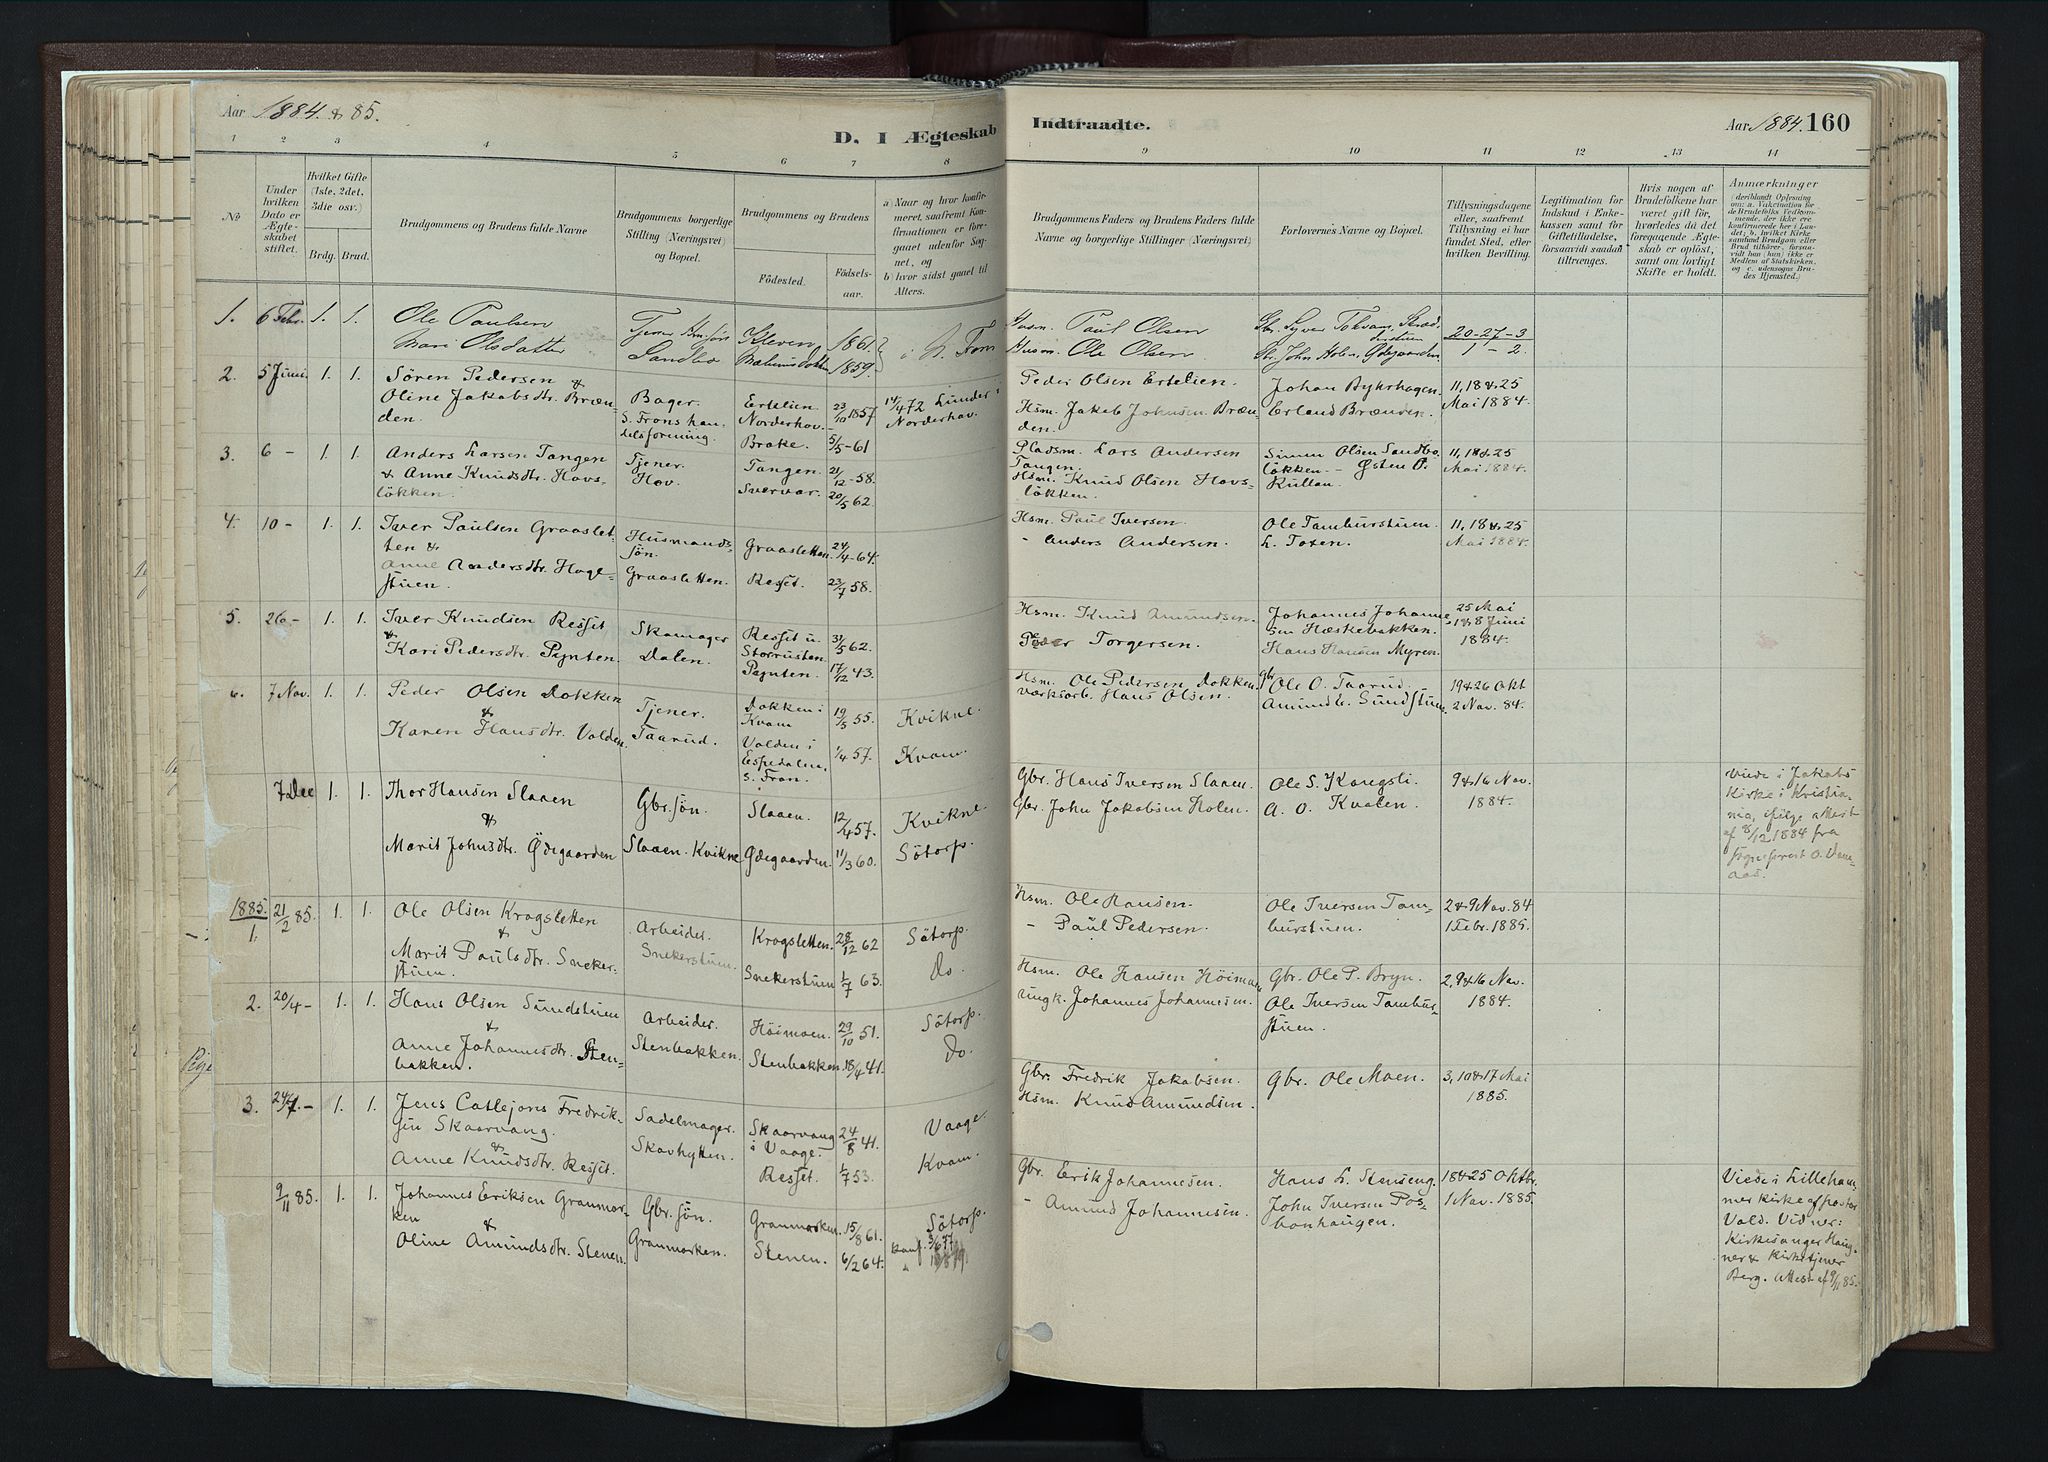 Aar 1884 & 85.
D. I Ægteskab Indtraadte.
Aar 1884. 160
1 2 3 4 5 6 7 8 9 10 11 12 13 14
No
Under hvilken Dato er Ægteskabet stiftet.
Hvilket Gifte (1ste, 2det, 3die osv.)
Brdg. Brud.
Brudgommens og Brudens fulde Navne
Brudgommens borgerlige Stilling (Næringsvei) og Bopæl.
Brudgommens og Brudens
Fødested.
Fødselsaar.
a) Naar og hvor konfirmeret, saafremt Konfirmationen er foregaaet udenfor Sognet, og
b) hvor sidst gaaet til Alters.
Brudgommens Faders og Brudens Faders fulde Navne og borgerlige Stillinger (Næringsvei)
Forlovernes Navne og Bopæl.
Tillysningsdagene eller, saafremt Tillysning ei har fundet Sted, efter hvilken Bevilling.
Legitimation for Indskud i Enkekassen samt for Giftetilladelse, forsaavidt saadan tiltrænges.
Hvis nogen af Brudefolkene har været gift før, hvorledes da det foregaaende Ægteskab er opløst, samt om lovligt Skifte er holdt.
Anmærkninger
1. 6 Febr. 1. 1. Ole Paulsen
Mari Olsdatter
Sandbo
Kleven 1861
1859.
Husm. Paul Olsen
Husm. Ole Olsen
20-27-3
1 - 2.
2. 5 Juni. 1. 1. Sören Pedersen &
Oline Jakobsdtr. Brænden.
Bager.
S. Frons handelsforening.
Ertelien Norderhov. 23/10 1857
Brake. 5/5-61
14/4 72 Lunder i Norderhov.
Peder Olsen Ertelien.
Hsm. Jakob Johnsen Brænden.
Johan Byhrhagen.
Erland Brænden.
11, 18 & 25
Mai 1884.
3. 6 - 1. 1. Anders Larsen Tangen
& Anne Knudsdtr. Hovsløkken.
Tjener.
Hov.
Tangen. 21/12-58.
20/5 62.
Pladsm. Lars Andersen Tangen.
Hsm. Knud Olsen Hovsløkken.
Simen Olsen Sandboløkken. - Østen O. Rullan.
11, 18 & 25
Mai 1884.
4. 10 - 1. 1. Iver Paulsen Graasletten &
Anne Andersdtr. Hagestuen.
Husmandssön.
Graasletten.
Graasletten. 24/4-64.
Resset. 23/7 58.
Hsm. Paul Iversen.
- Anders Andersen.
Ole Tamburstuen.
L. Toxen.
11, 18 & 25
Mai 1884.
5. 26 - 1. 1. Iver Knudsen Resset
&
Kari Pedersdtr. Pynten.
Skomager
Dalen.
Resset u. Storrusten 31/5 62.
Pynten. 17/12 43.
Hsm. Knud Amundsen.
Peder Torgersen.
Johannes Johannesen Hæskebakken.
Hans Hansen Myren.
25 Mai
1 & 8 Juni
1884.
6. 7 Nov. 1. 1. Peder Olsen Dokken
&
Karen Hansdtr. Valden.
Tjener.
Taarud.
Dokken i Kvam 19/5 55.
Valden i Espedalen, S. Fron. 1/4 57.
Kvikne.
Kvam.
Hsm. Ole Pedersen Dokken.
Værksarb. Hans Olsen.
Gbr. Ole O. Taarud.
Amund L. Sundstuen.
19 & 26 Okt
2 Nov. 84.
7 Dec 1. 1. Thor Hansen Slaaen
&
Marit Johnsdtr. Ødegaarden
Gbr.søn.
Slaaen. Kvikne
Slaaen. 12/4 57.
Ødegaarden. 11/3 60.
Kvikne.
Södorp.
Gbr. Hans Iversen Slaaen.
Gbr. John Jakobsen Holen.
Ole S. Kongsli.
A. O. Kvalen.
9 & 16 Nov.
1884.
Viede i Jakobs
Kirke i Kristiania, ifølge attest
af 8/12 1884 fra
sogneprest O.
1885. 1. 21/2 85. 1. 1. Ole Olsen Krogsletten
&
Marit Paulsdtr. Snekerstuen.
Arbeider.
Snekerstuen.
Krogsletten. 28/12 62
Snekerstuen 1/7 63.
Södorp.
Do.
Hsm. Ole Hansen.
- Paul Pedersen.
Ole Iversen Tamburstuen.
2 & 9 Nov. 84
1 Febr. 1885.
2. 20/4 - 1. 1. Hans Olsen Sundstuen
&
Anne Johannesdtr. Stenbakken.
Arbeider.
Stenbakken.
Höimoen. 29/10 51.
Stenbakken. 18/4 41.
Södorp.
Do.
Hsm. Ole Hansen Höimoen
Ungk. Johannes Johannesen.
Gbr. Ole P. Bryn.
Ole Iversen Tamburstuen.
2, 9 & 16 Nov.
1884.
3. 1. 1. Jens Catlejons Fredriksen Skaarvang.
&
Anne Knudsdtr. Resset.
Sadelmager.
Skovhytten.
Skaarvang i Vaage. 24/8 41.
Resset. 1/7 53.
Vaage.
Kvam.
Gbr. Fredrik Jakobsen.
Hsm. Knud Amundsen.
Gbr. Ole Moen.
3, 10 & 17 Mai
1885.
9/11 85. 1. 1. Johannes Eriksen Granmorken
&
Oline Amundsdtr. Stenen.
Gbr.søn.
Granmorken.
Granmorken. 15/8 61.
Stenen. 6/2 64.
Södorp.
konf. 3/6 77
Gbr. Erik Johannesen.
- Amund Johannesen.
Hans L. Stenseng.
John Iversen Posbonhaugen.
18 & 25 Oktbr.
1 Nov. 1885.
Viede i Lillehammer kirke af pastor
Vold. Vidner:
Kirkesanger Haugner & Kirketjener
Berg. Attest af 9/11 85.